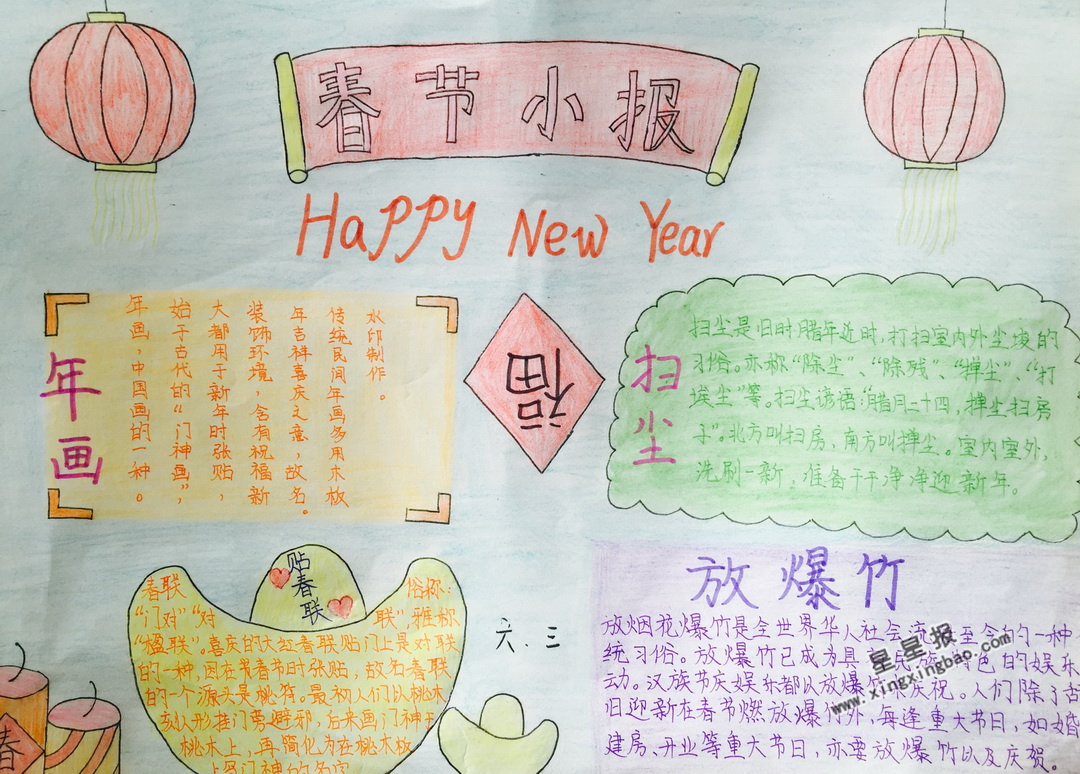 春节小报
Happy New Year
年画
年画,中国画的一种。
始于古代的“门神画”,
大都用于新年时张贴,
装饰环境,含有祝福新
年吉祥喜庆之意,故名。
传统民间年画多用木板
水印制作。
福
扫尘
扫尘是旧时腊年近时,打扫室内外尘埃的
习俗。亦称“除尘”、“除残”、“掸尘”、“打
埃尘”等。扫尘谚语:“腊月二十四,掸尘扫房
子”。北方叫扫房,南方叫掸尘。室内室外,
洗刷一新,准备干干净净迎新年。
贴春联
春联 俗称:
“门对”“对 联”,雅称
“楹联”。喜庆的大红春联贴门上是对联
的一种,因在春节时张贴,故名春联
的一个源头是桃符。最初人们以桃木
刻人形挂门旁避邪,后来画门神于
桃木上,再简化为在桃木板
上写门神的名字
春
六.三
放爆竹
放烟花爆竹是全世界华人社会流 至今的一种
统习俗。放爆竹已成为具 民族 色的娱乐
动。汉族节庆娱乐都以放爆竹 庆祝。人们除了古
旧迎新在春节燃放爆竹外,每逢重大节日,如婚
建房、开业等重大节日,亦要放爆竹以及庆贺。
星星报
www.xingxingbao.com